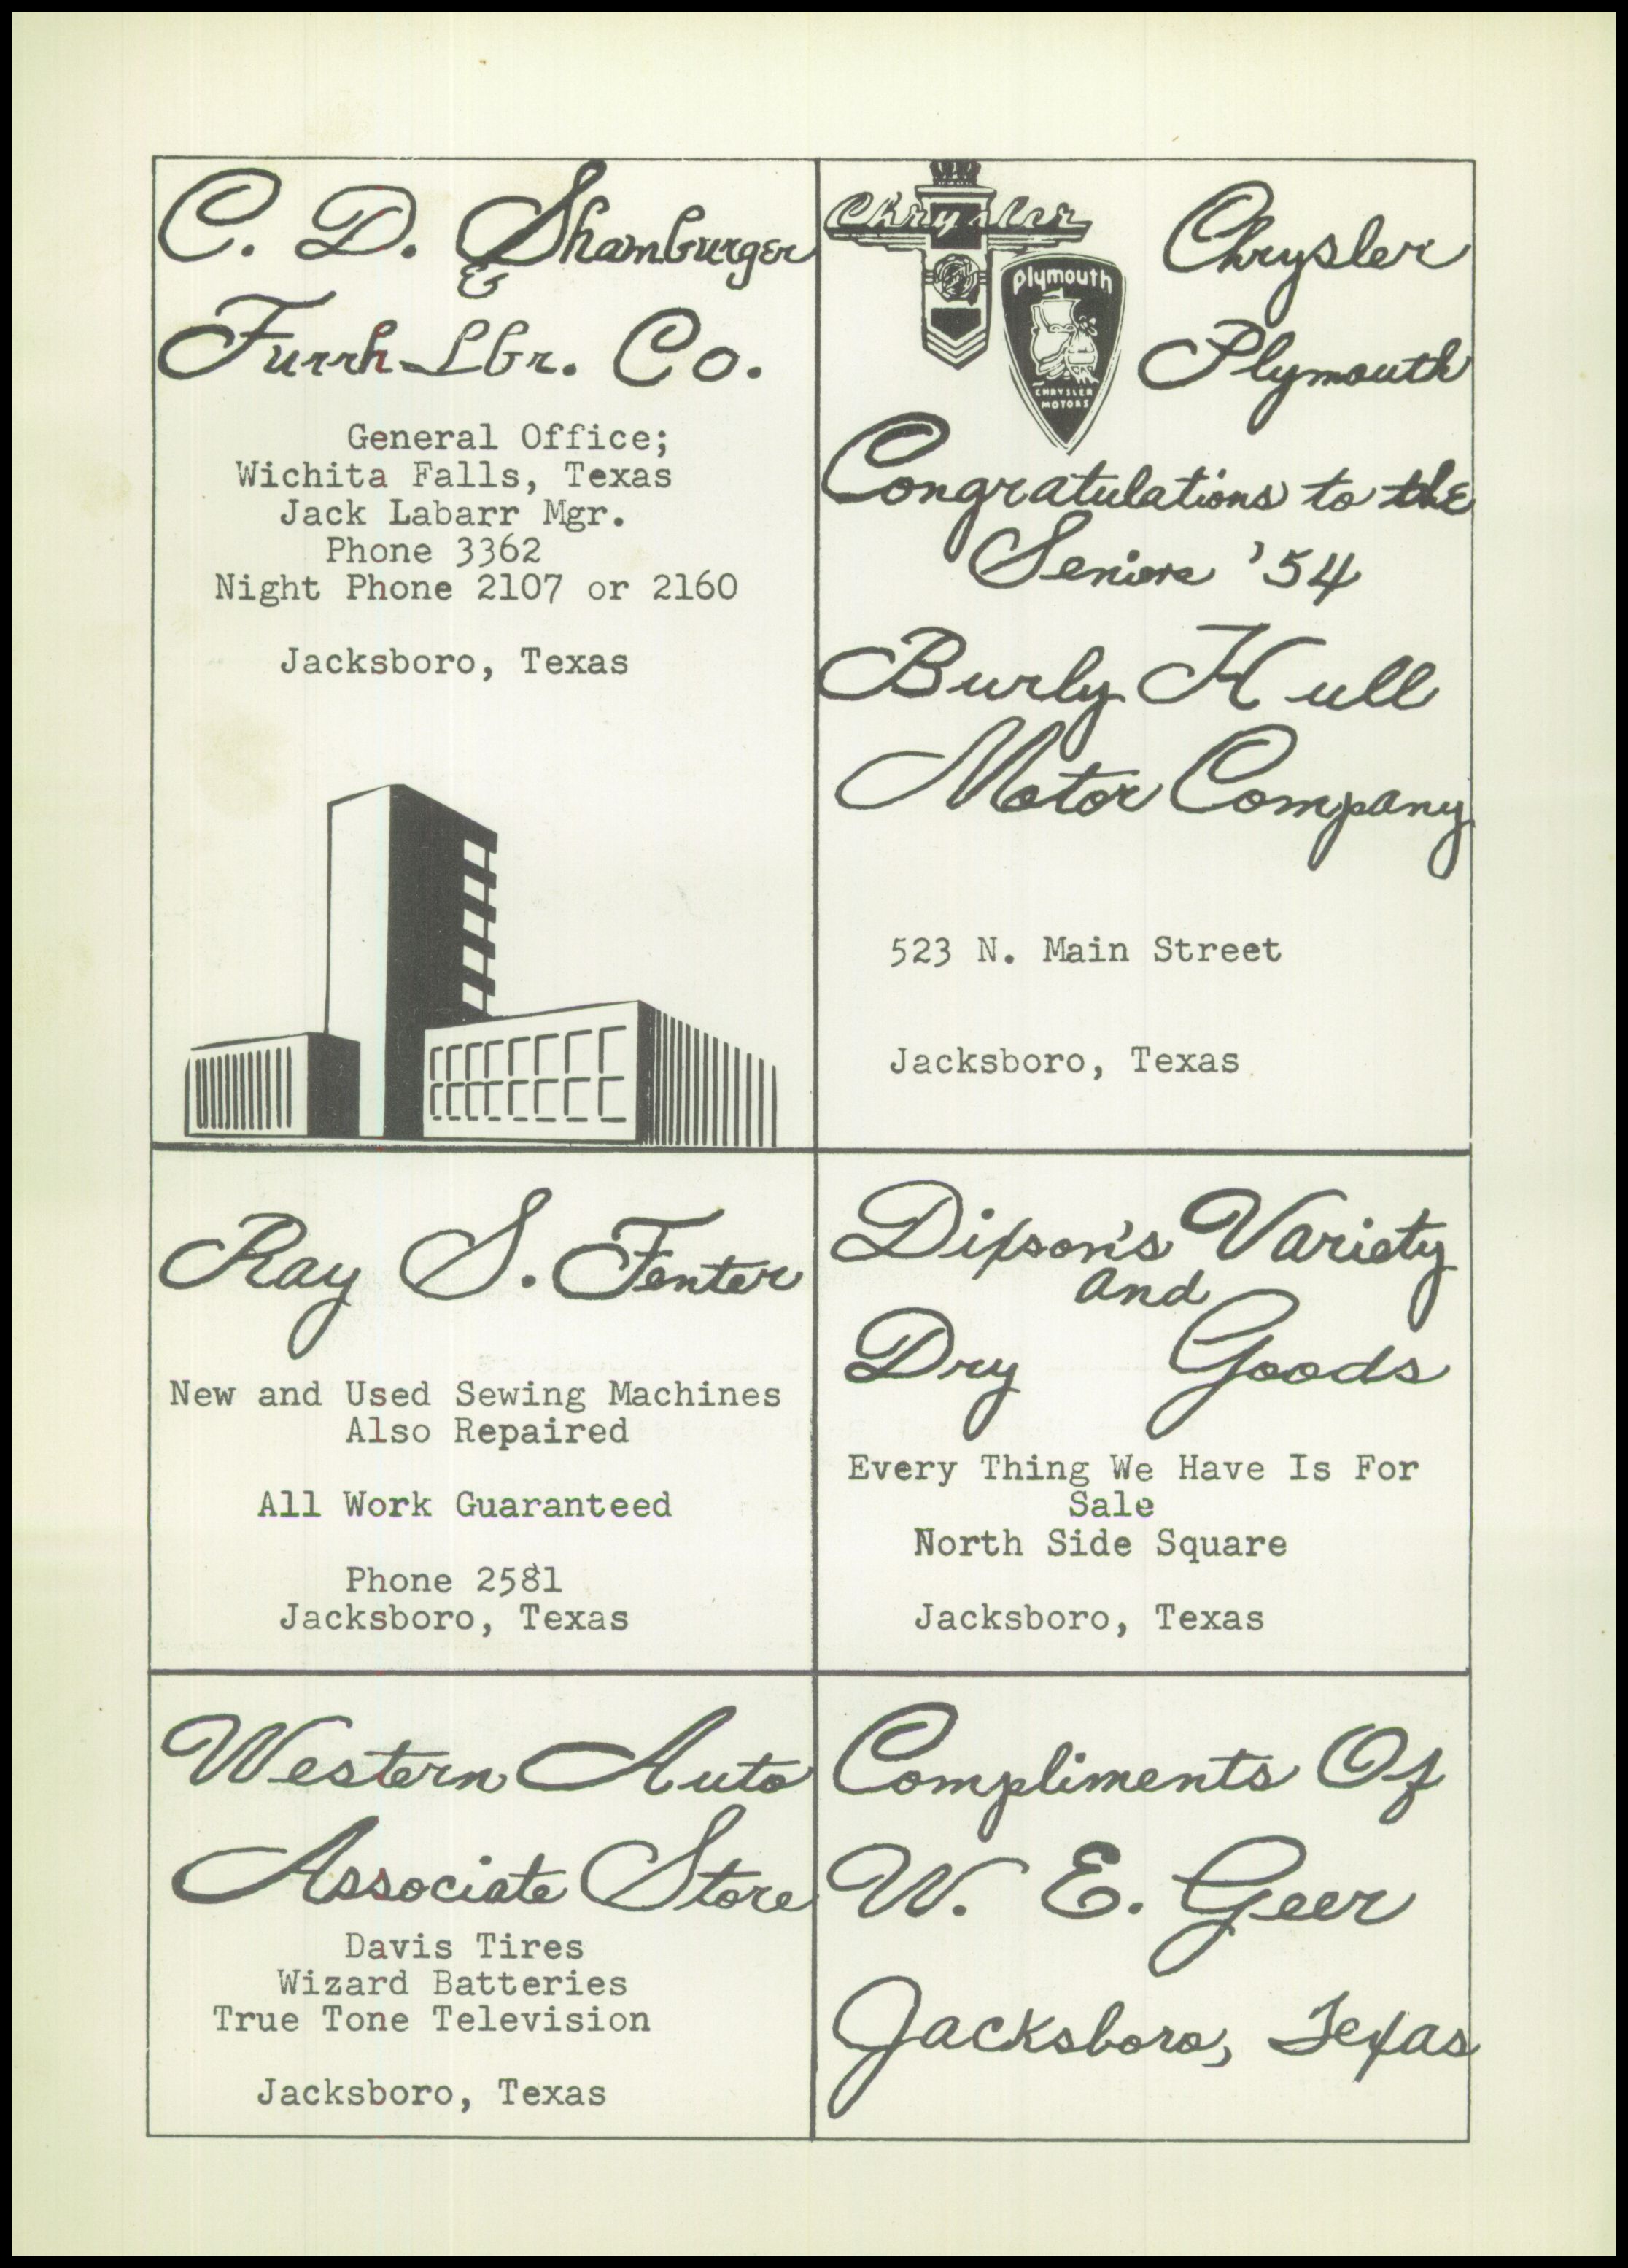 C. D. Shamburger
&
Furrh Lbr. Co.
General Office;
Wichita Falls, Texas
Jack Labarr Mgr.
Phone 3362
Night Phone 2107 or 2160
Jacksboro, Texas
Chrysler
Plymouth
CHRYSLER
MOTORS
Chrysler
Plymouth
Congratulations to the
Seniors '54
Burly Hull
Motor Company
523 N. Main Street
Jacksboro, Texas
Ray S. Fenter
New and Used Sewing Machines
Also Repaired
All Work Guaranteed
Phone 2581
Jacksboro, Texas
Dixson's Variety
and
Dry Goods
Every Thing We Have Is For
Sale
North Side Square
Jacksboro, Texas
Western Auto
Associate Store
Davis Tires
Wizard Batteries
True Tone Television
Jacksboro, Texas
Compliments Of
W. E. Geer
Jacksboro, Texas